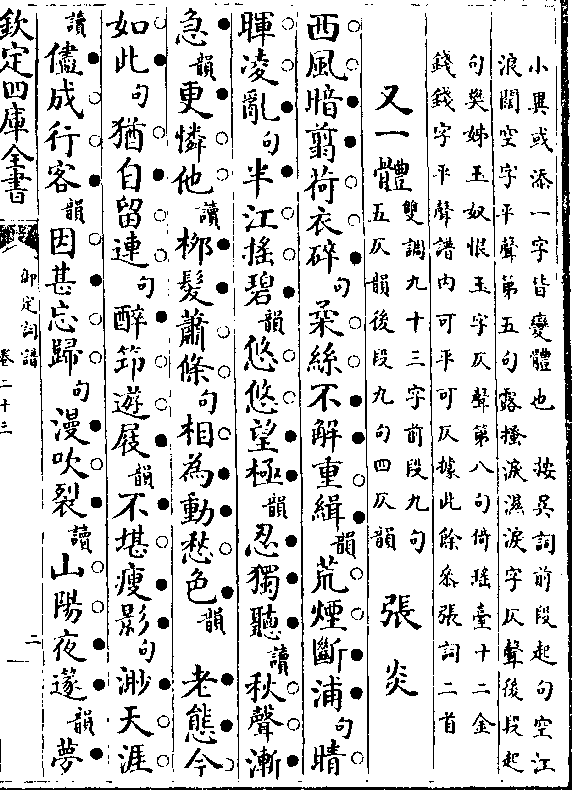 小異或添一字皆變體也　按吳詞前段起句空江
浪闊空字平聲第五句露搔淚濕淚字仄聲後段起
句樊姊玉奴恨玉字仄聲第八句倚瑤臺十二金
錢錢字平聲譜内可平可仄據此餘參張詞二首
又一體 雙調九十三字前段九句
五仄韻後段九句四仄韻 張炎
西風暗翦荷衣碎句柔絲不解重緝韻荒煙斷浦句晴
暉凌亂句半江搖碧韻悠悠望極韻忍獨聽讀秋聲漸
急韻更憐他讀栁髮蕭條句相為動愁色韻　老態今
如此句猶自留連句醉筇遊屐韻不堪瘦影句渺天涯
讀儘成行客韻因甚忘歸句漫吹裂讀山陽夜邃韻夢
欽定四庫全書 御定詞譜 卷二十三 二